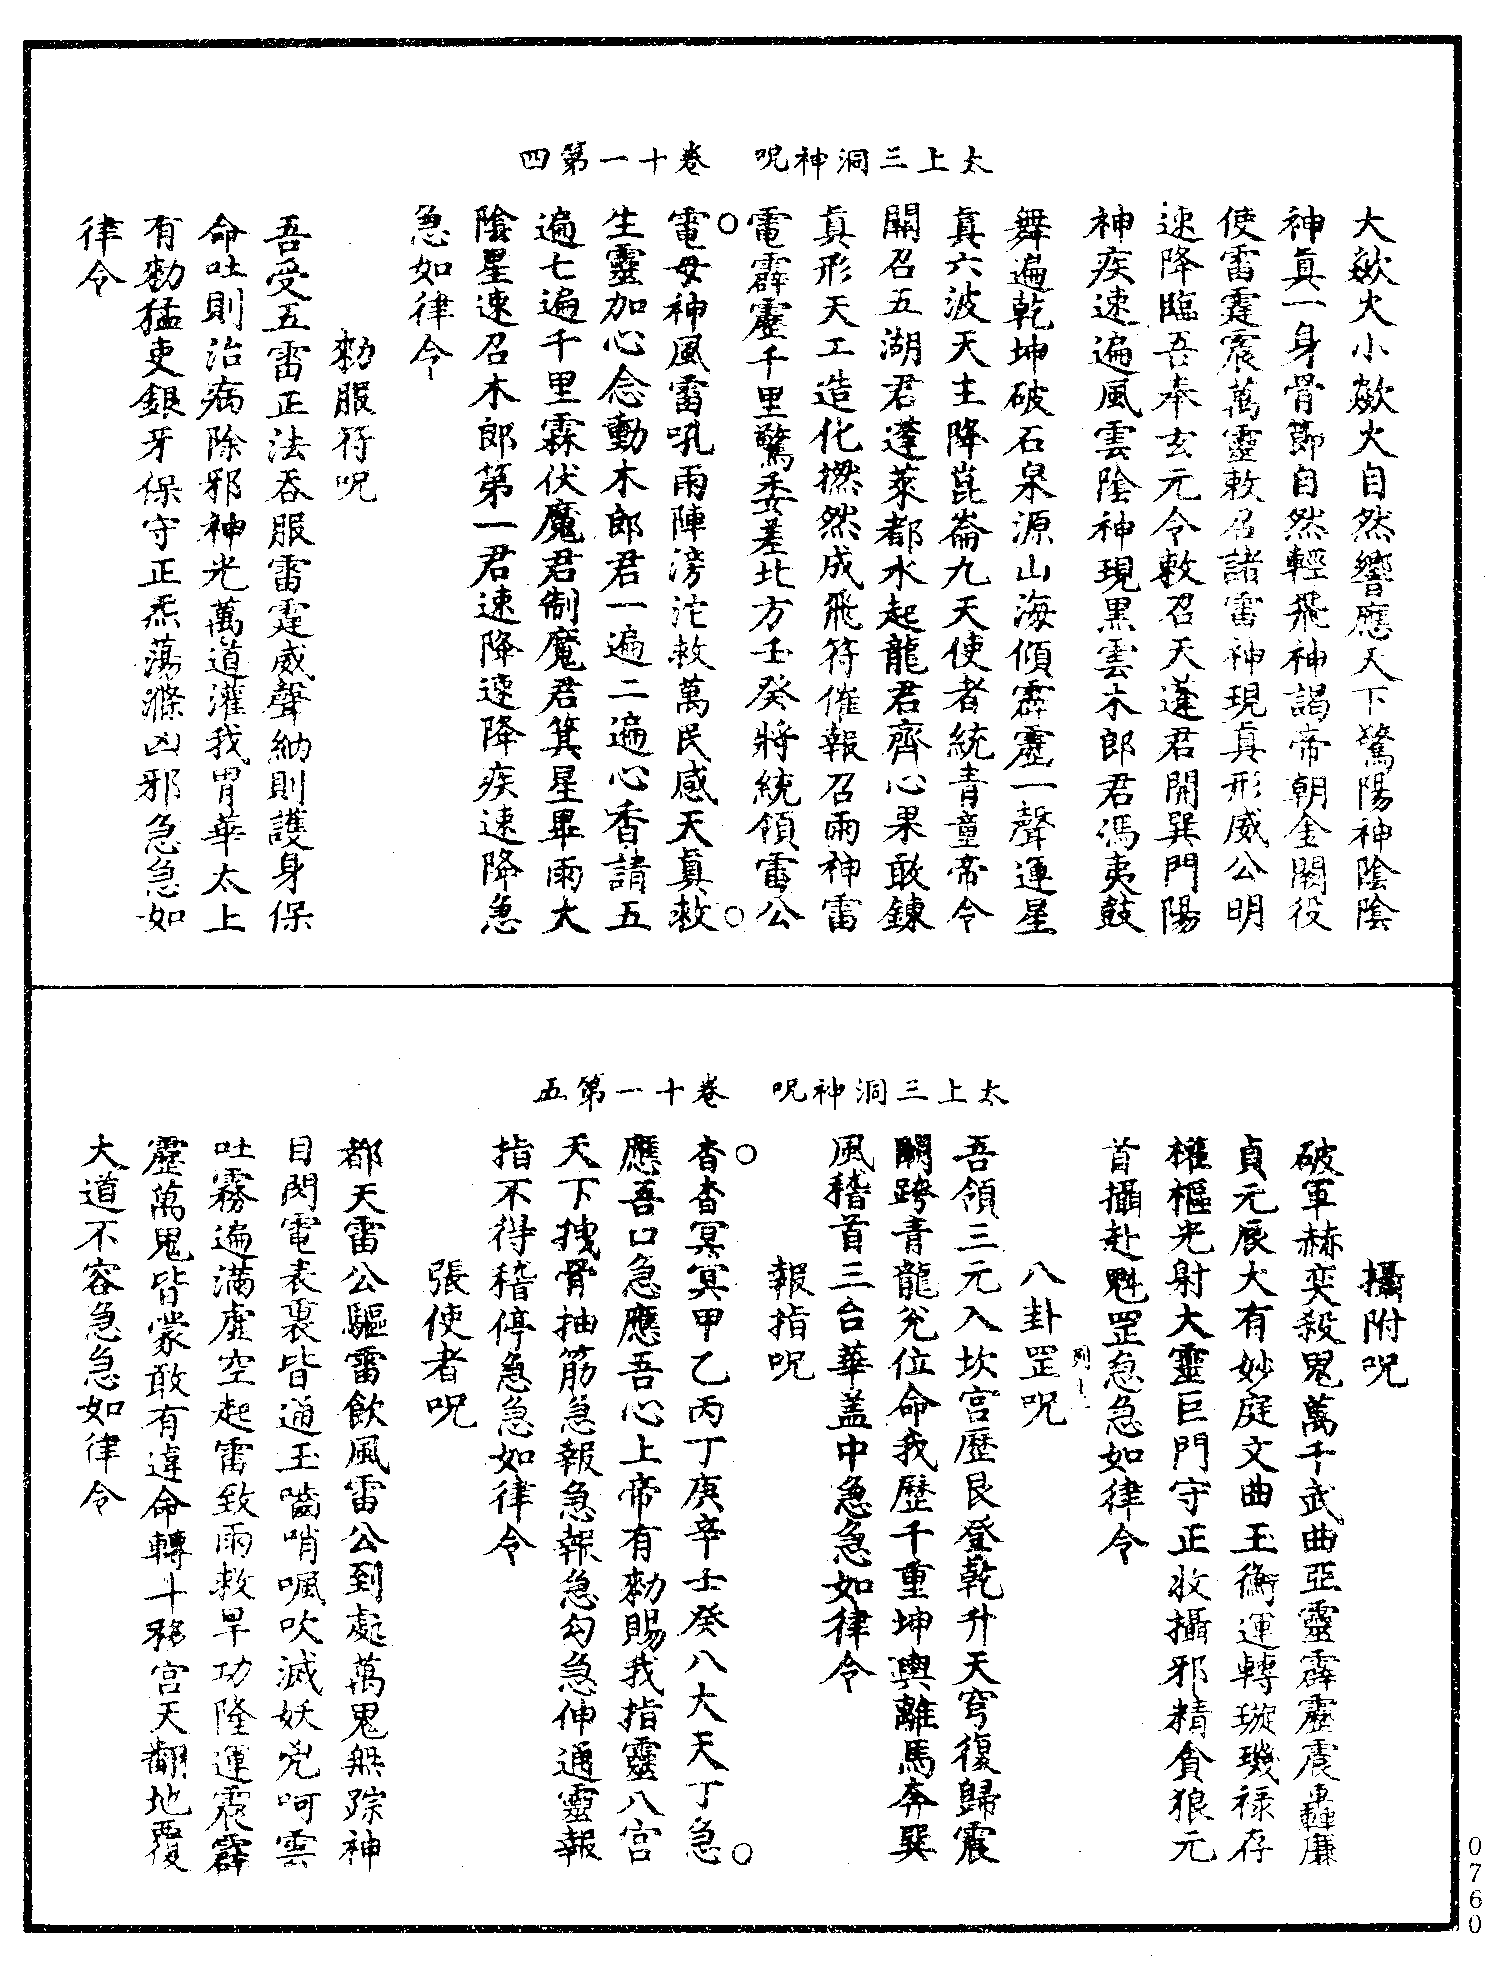 太上三洞神呪　卷十一第四
大歘火小歘火自然響應天下驚陽神陰陰
神真一身骨節自然輕飛神謁帝朝金闕役
使雷霆震萬靈敕召諸雷神現真形威公明
速降臨吾奉玄元令敕召天蓬君開巽門陽
神疾速遍風雲陰神現黑雲木郎君馮夷鼓
舞遍乾坤破石泉源山海傾霹靂一聲運星
真六波天主降崑崙九天使者統青童帝令
關召五湖君蓬萊都水起龍君齊心果敢鍊
真形天工造化撚然成飛符催報召雨神雷
電霹靂千里驚委差北方壬癸將統領雷公
電母神風雷吼雨陣滂沱救萬民感天真救
生靈加心念動木郎君一遍二遍心香請五
遍七遍千里霖伏魔君制魔君箕星畢雨大
陰星速召木郎第一君速降速降疾速降急
急如律令
勑服符呪
吾受五雷正法吞服雷霆威聲納則護身保
命吐則治病除邪神光萬道灌我胃華太上
有勑猛吏銀牙保守正炁蕩滌凶邪急急如
律令
太上三洞神呪　卷十一第五
攝附呪
破軍赫奕殺鬼萬千武曲亞靈霹靂震轟廉
貞元辰大有妙庭文曲玉衡運轉璇璣祿存
權樞光射大靈巨門守正收攝邪精貪狼元
首攝赴魁罡急急如律令
八卦罡呪
吾領三元入坎宮歷艮登乾升天穹復歸震
關跨青龍兌位命我歷千重坤輿離馬奔巽
風稽首三台華蓋中急急如律令
報指呪
杳杳冥冥甲乙丙丁庚辛壬癸八大天丁急
應吾口急應吾心上帝有勑賜我指靈八宮
天下拽骨抽筋急報急報急勾急伸通靈報
指不得稽停急急如律令
張使者呪
都天雷公驅雷飲風雷公到處萬鬼無踪神
目閃電表裏皆通玉嚙哨颯吹滅妖兇呵雲
吐霧遍滿虛空起雷致雨救旱功隆運震霹
靂萬鬼皆蒙敢有違命轉斗移宮天翻地覆
大道不容急急如律令
0760